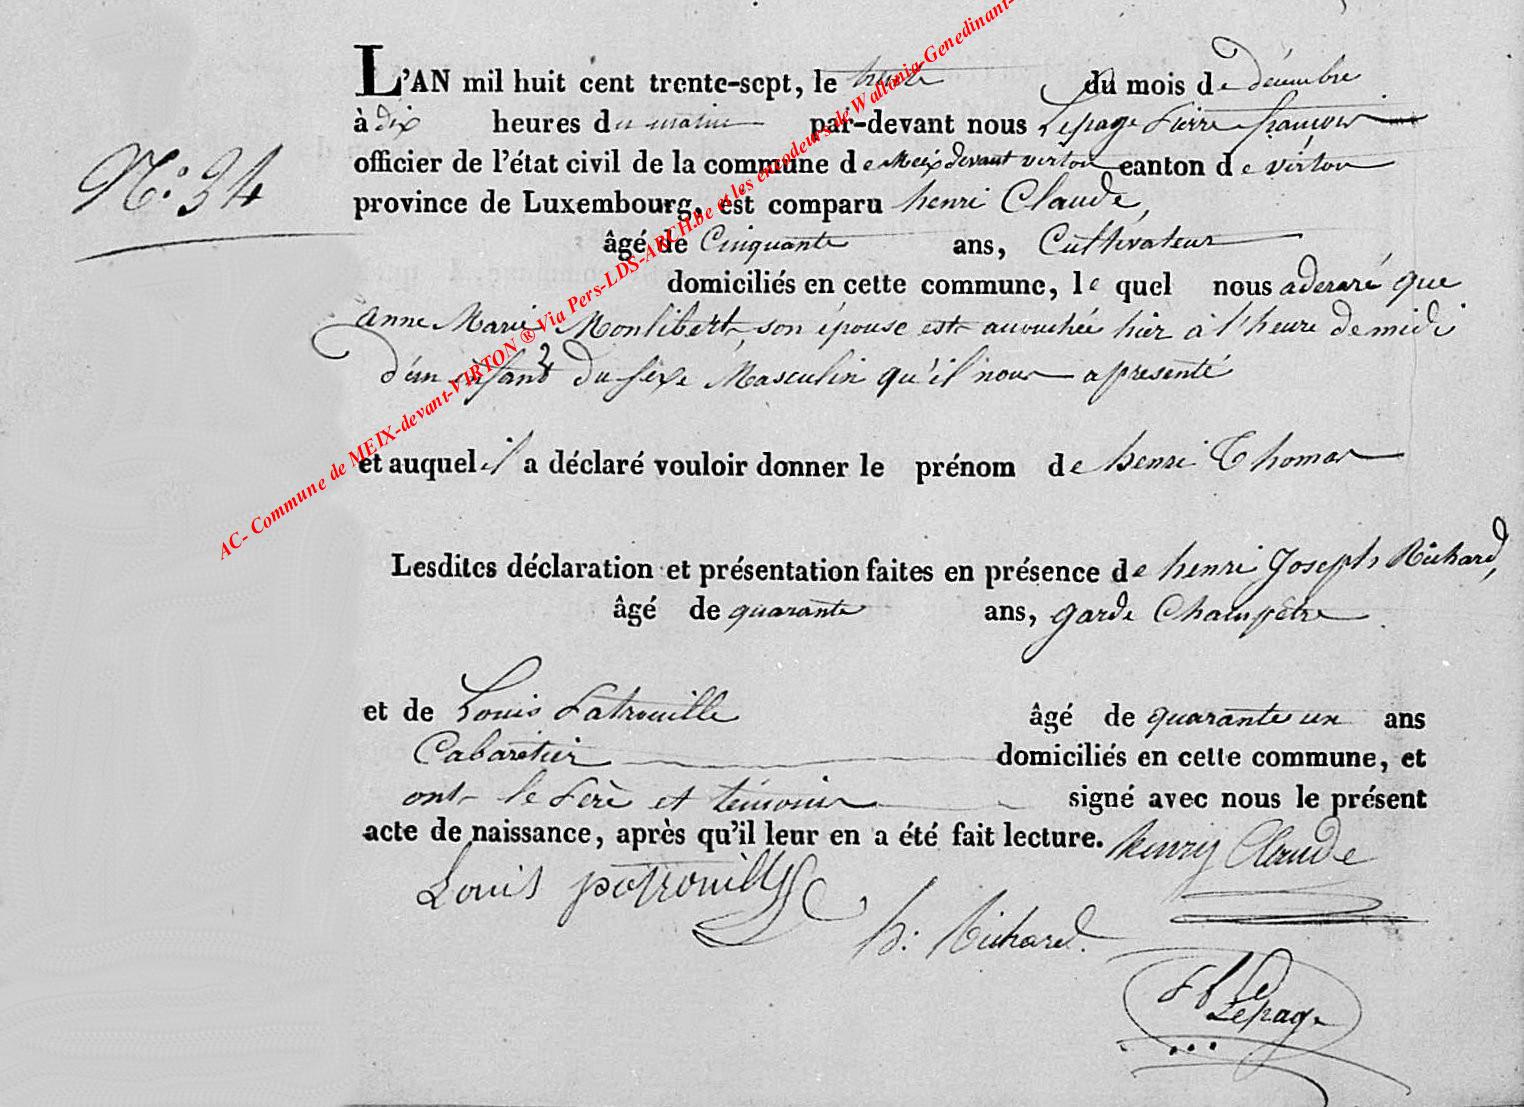 L'AN mil huit cent trente-sept, le trente du mois de décembre
à dix heures du matin par-devant nous Lepage Pierre françois
officier de l'état civil de la commune de Meix devant virton canton de virton
N.o 34
province de Luxembourg, est comparu henri Claude,
âgé de Cinquante ans, Cultivateur
domiciliés en cette commune, le quel nous a déclaré que
anne Marie Monlibert, son épouse est accouchée hier à l'heure de midi
d'un enfant du sexe Masculin qu'il nous a présenté
et auquel il a déclaré vouloir donner le prénom de henri Thomas
Lesdites déclaration et présentation faites en présence de henri Joseph Richard,
âgé de quarante ans, garde Champêtre
et de Louis Patrouille âgé de quarante un ans
Cabaretier domiciliés en cette commune, et
ont le Père et témoins signé avec nous le présent
acte de naissance, après qu'il leur en a été fait lecture. henry Claude
Louis patrouille
h: Richard
Lepage
AC- Commune de MEIX-devant-VIRTON ® Via Pers-LDS-ARCH.be et les encodeurs de Wallonia-Genedinant-